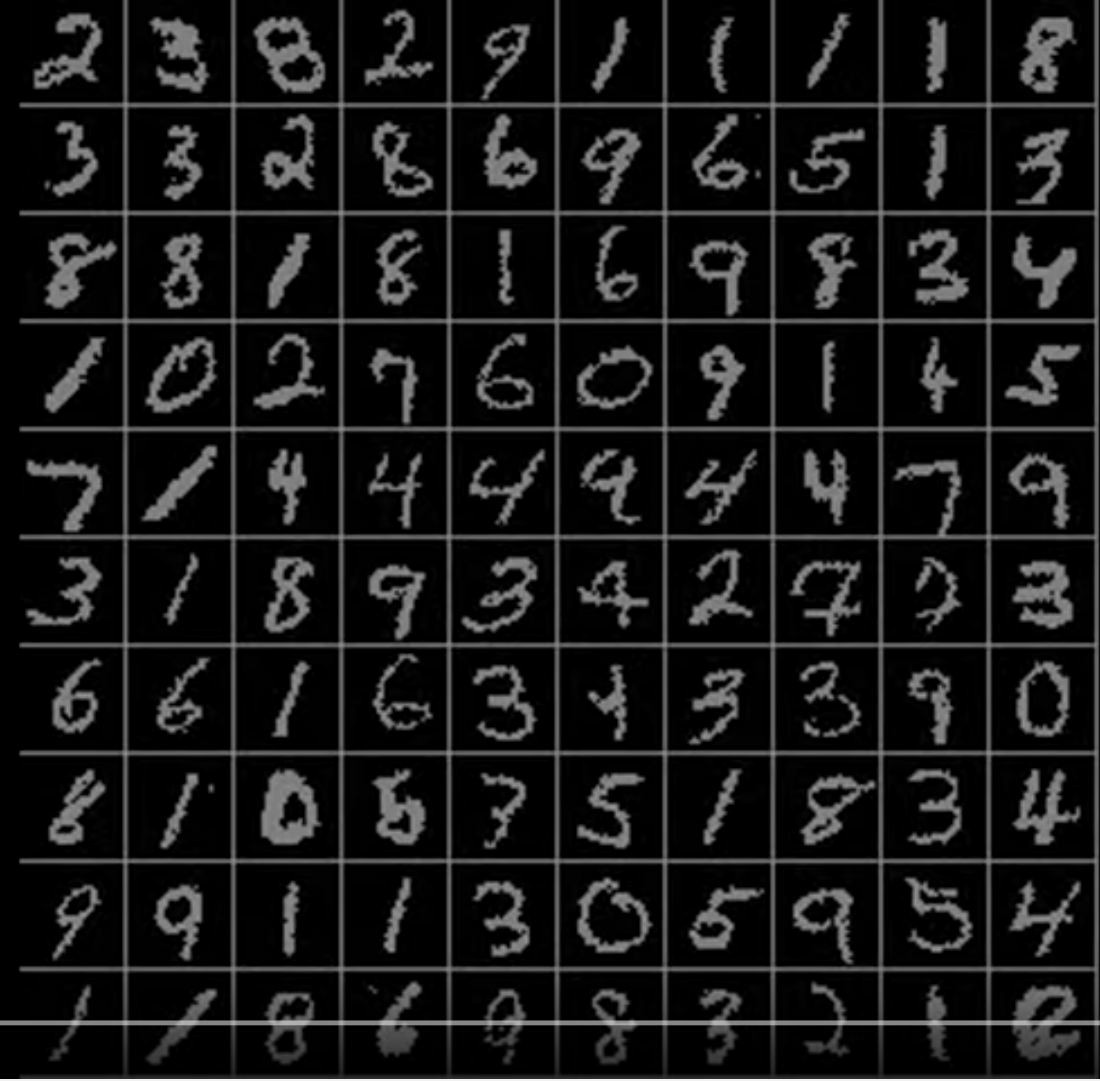 2 3 8 2 9 1 1 1 1 8
3 3 2 8 6 9 6 5 1 3
8 8 1 8 1 6 9 8 3 4
1 0 2 7 6 0 9 1 4 5
7 1 4 4 4 9 4 4 7 9
3 1 8 9 3 4 2 7 3
6 6 1 6 3 4 3 3 9 0
8 1 0 8 3 5 1 8 3 4
9 9 1 1 3 0 5 9 5 4
1 1 8 6 9 8 3 2 1